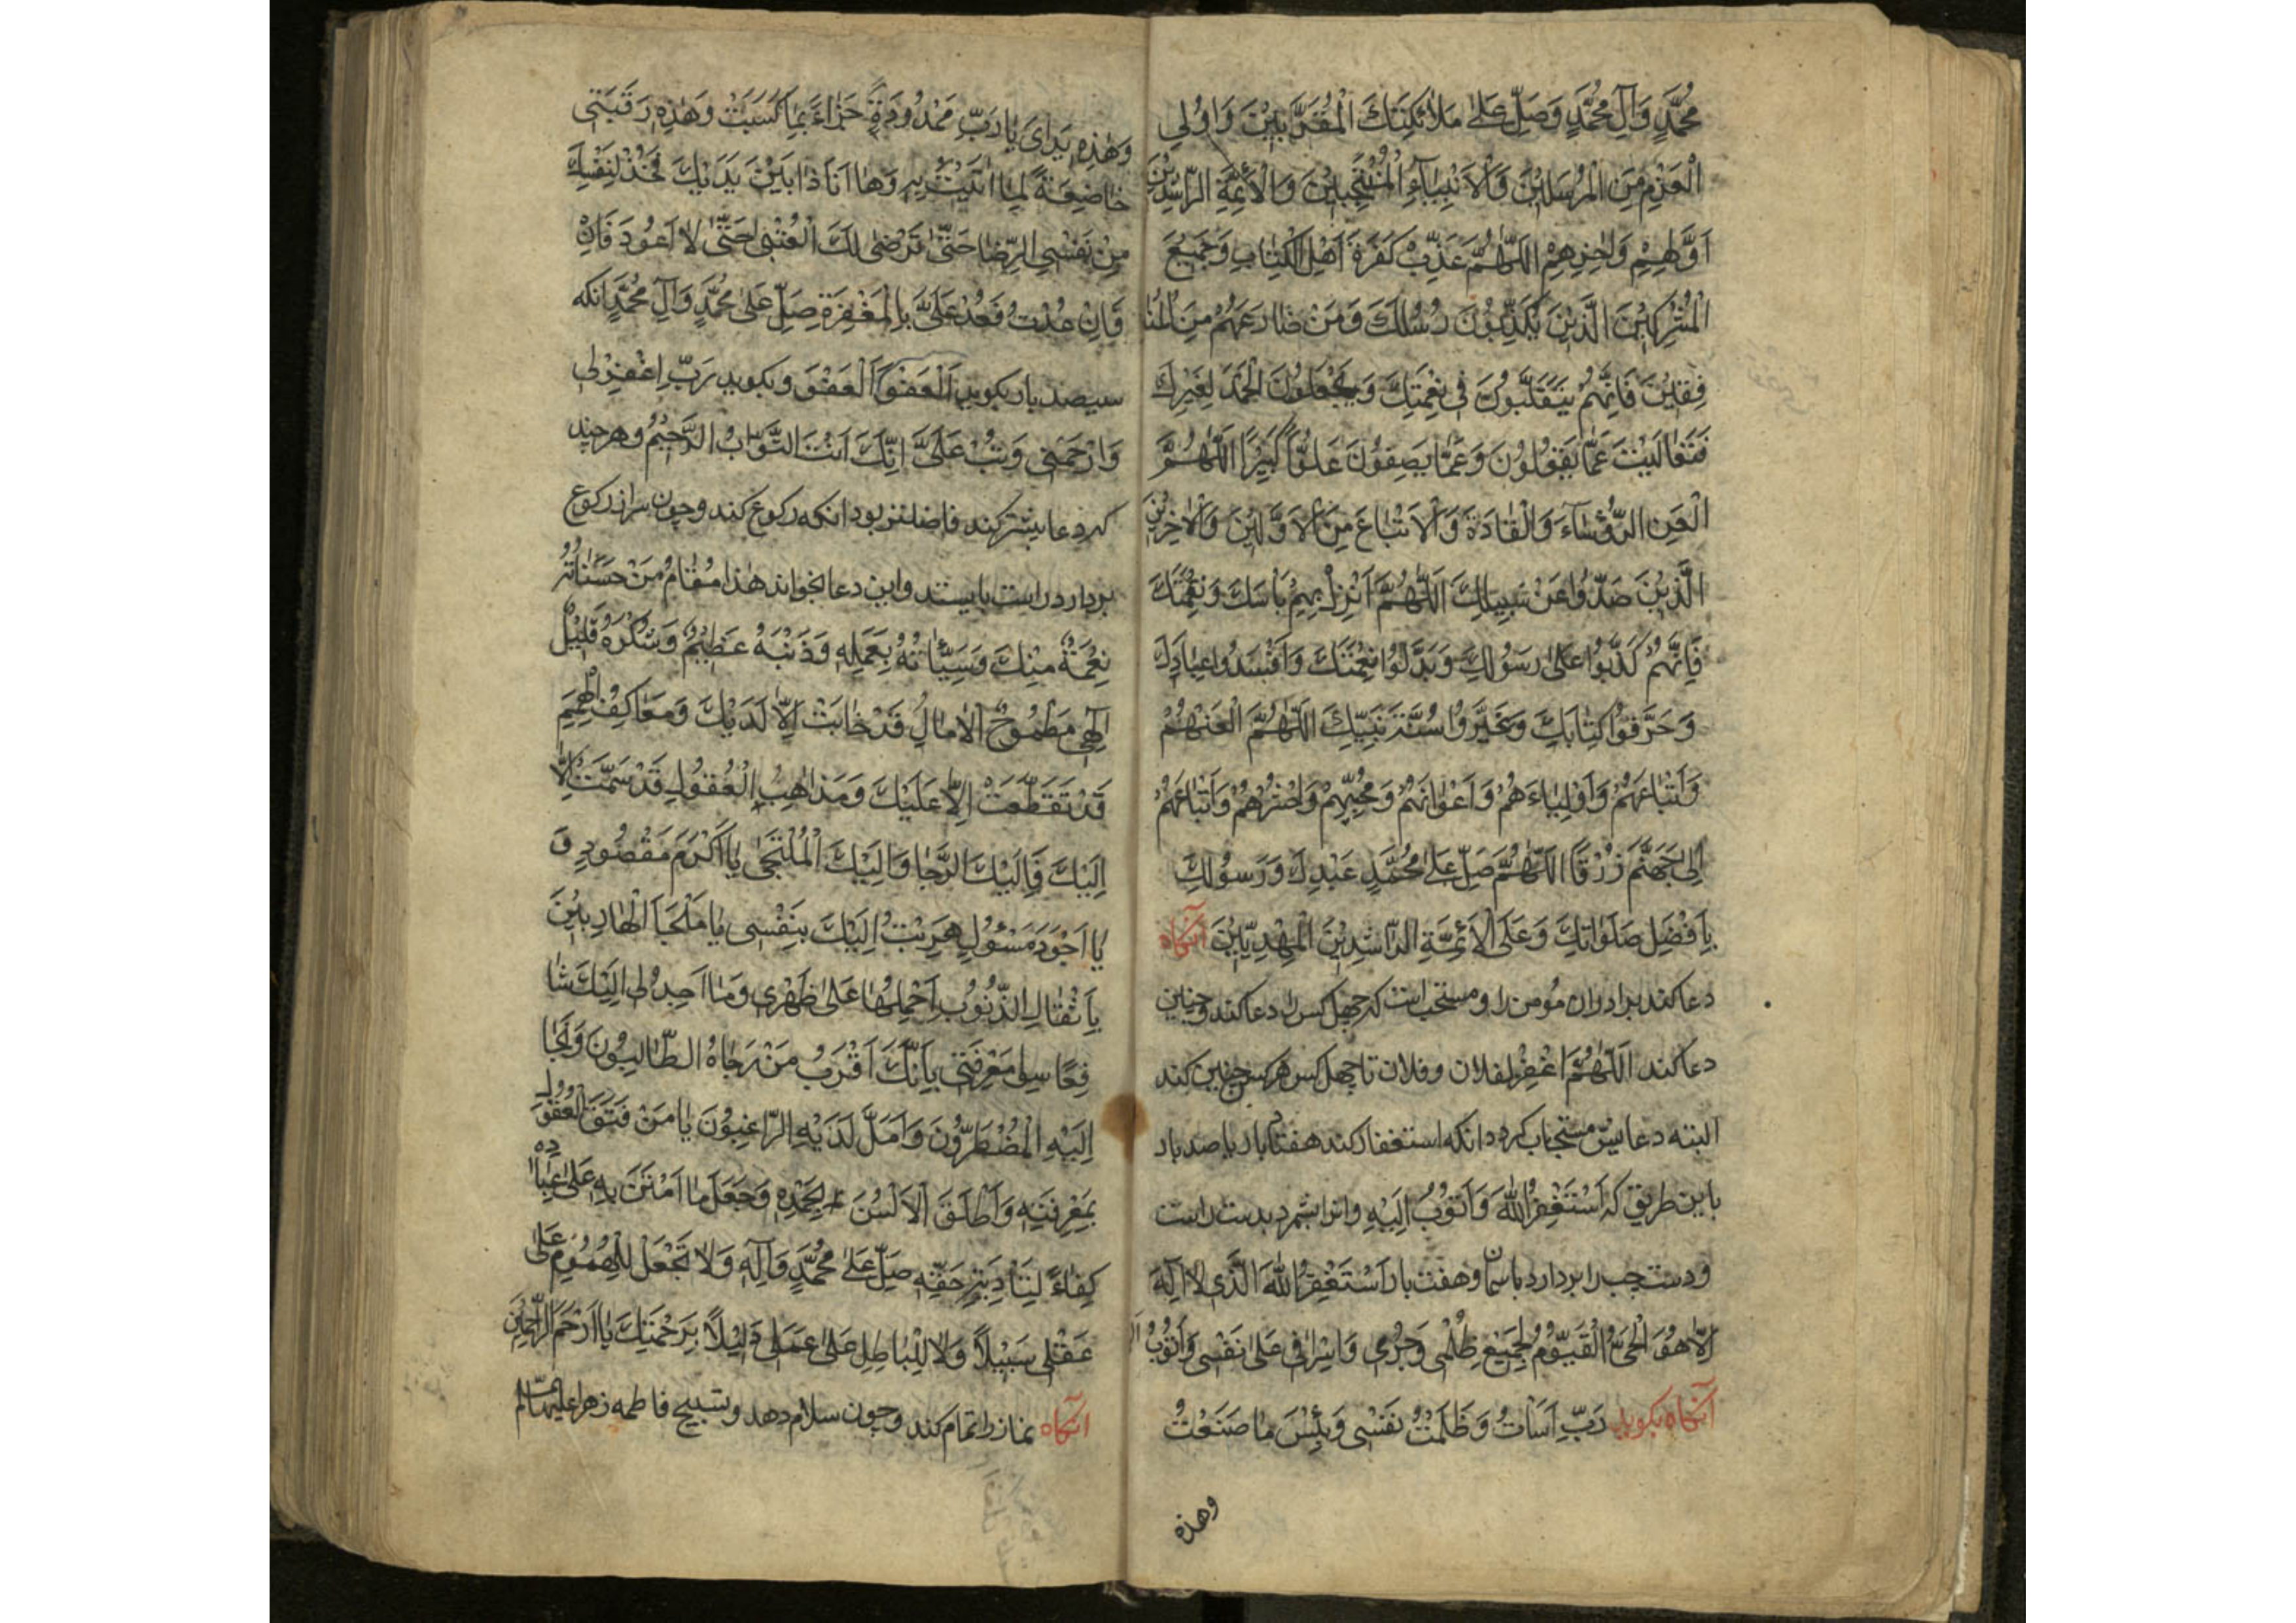 مُحَمَّدٍ وَآلِ مُحَمَّدٍ وَصَلِّ عَلىٰ مَلاٰئِكَتِكَ الْمُقَرَّبِيْنَ وَاُولِي
الْعَزْمِ مِنَ الْمُرْسَلِيْنَ وَالْاَنْبِيٰاءِ الْمُنْتَجَبِيْنَ وَالْاَئِمَّةِ الرّٰاشِدِيْنَ
اَوَّلِهِمْ وَاٰخِرِهِمْ اَللّٰهُمَّ عَذِّبْ كَفَرَةَ اَهْلِ الْكِتٰابِ وَجَمِيْعَ
الْمُشْرِكِيْنَ الَّذِيْنَ يُكَذِّبُوْنَ رُسُلَكَ وَمَنْ ضٰارَعَهُمْ مِنَ الْمُنٰا
فِقِيْنَ فَاِنَّهُمْ يَتَقَلَّبُوْنَ فِي نِعْمَتِكَ وَيَجْعَلُوْنَ الْحَمْدَ لِغَيْرِكَ
فَتَعٰالَيْتَ عَمّٰا يَقُوْلُوْنَ وَعَمّٰا يَصِفُوْنَ عُلُوًّا كَبِيْرًا اَللّٰهُمَّ
الْعَنِ الرُّؤَسٰاءَ وَالْقٰادَةَ وَالْاَتْبٰاعَ مِنَ الْاَوَّلِيْنَ وَالْاٰخِرِيْنَ
الَّذِيْنَ صَدُّوْا عَنْ سَبِيْلِكَ اَللّٰهُمَّ اَنْزِلْ بِهِمْ بَأْسَكَ وَنِقْمَتَكَ
فَاِنَّهُمْ كَذَّبُوْا عَلىٰ رَسُوْلِكَ وَبَدَّلُوْا نِعْمَتَكَ وَاَفْسَدُوْا عِبٰادَكَ
وَحَرَّفُوْا كِتٰابَكَ وَغَيَّرُوْا سُنَّةَ نَبِيِّكَ اَللّٰهُمَّ الْعَنْهُمْ
وَاَتْبٰاعَهُمْ وَاَوْلِيٰاءَهُمْ وَاَعْوٰانَهُمْ وَمُحِبِّيْهِمْ وَاحْشُرْهُمْ وَاَتْبٰاعَهُمْ
اِلىٰ جَهَنَّمَ زُرْقًا اَللّٰهُمَّ صَلِّ عَلىٰ مُحَمَّدٍ عَبْدِكَ وَرَسُوْلِكَ
بِاَفْضَلِ صَلَوٰاتِكَ وَعَلَى الْاَئِمَّةِ الرّٰاشِدِيْنَ الْمَهْدِيِّيْنَ آنگاه
دعا كند برادران مؤمن را و مستحب است كه چهل كس را دعا كند و چنين
دعا كند اَللّٰهُمَّ اغْفِرْ لفلان وفلان تا چهل كس هر كس چنين كند
البته دعايش مستجاب گردد انكه استغفار كند هفتاد بار يا صد بار
باين طريق كه اَسْتَغْفِرُ اللّٰهَ وَاَتُوْبُ اِلَيْهِ وانرا بشمرد بدست راست
ودست چپ را بردارد باسمان وهفت بار اَسْتَغْفِرُ اللّٰهَ الَّذِي لاٰ اِلٰهَ
اِلاّٰ هُوَ الْحَيُّ الْقَيُّوْمُ لِجَمِيْعِ ظُلْمِي وَجُرْمِي وَاِسْرٰافِي عَلىٰ نَفْسِي وَاَتُوْبُ
آنگاه بگويد رَبِّ اَسَأْتُ وَظَلَمْتُ نَفْسِي وَبِئْسَ مٰا صَنَعْتُ
وهذه
وَهٰذِهِ يَدٰاىَ يٰا رَبِّ مَمْدُوْدَةً جَزٰاءً بِمٰا كَسَبَتْ وَهٰذِهِ رَقَبَتِي
خٰاضِعَةً لِمٰا اَتَيْتُ بِهِ وَهٰا اَنَا ذٰا بَيْنَ يَدَيْكَ فَخُذْ لِنَفْسِكَ
مِنْ نَفْسِي الرِّضٰا حَتّٰى تَرْضىٰ لَكَ الْعُتْبٰى حَتّٰى لاٰ اَعُوْدَ فَاِنْ
فَاِنْ عُدْتُ فَعُدْ عَلَيَّ بِالْمَغْفِرَةِ صَلِّ عَلىٰ مُحَمَّدٍ وَآلِ مُحَمَّدٍ انكه
سيصد بار بگويد اَلْعَفْوَ اَلْعَفْوَ وبگويد رَبِّ اغْفِرْ لِي
وَارْحَمْنِي وَتُبْ عَلَيَّ اِنَّكَ اَنْتَ التَّوّٰابُ الرَّحِيْمُ وهر چند
كه دعا بيشتر كند فاضلتر بود انكه ركوع كند وچون سر از ركوع
بردارد راست بايستد واين دعا بخواند هٰذٰا مَقٰامُ مَنْ حَسَنٰاتُهُ
نِعْمَةٌ مِنْكَ وَسَيِّئٰاتُهُ بِعَمَلِهِ وَذَنْبُهُ عَظِيْمٌ وَشُكْرُهُ قَلِيْلٌ
اِلٰهِي طُمُوْحُ الْاٰمٰالِ قَدْ خٰابَتْ اِلاّٰ لَدَيْكَ وَمَعٰاكِفُ الْهِمَمِ
قَدْ تَقَطَّعَتْ اِلاّٰ عَلَيْكَ وَمَذٰاهِبُ الْعُقُوْلِ قَدْ سَمَتْ اِلاّٰ
اِلَيْكَ فَاِلَيْكَ الرَّجٰا وَاِلَيْكَ الْمُلْتَجٰى يٰا اَكْرَمَ مَقْصُوْدٍ وَ
يٰا اَجْوَدَ مَسْؤُلٍ هَرَبْتُ اِلَيْكَ بِنَفْسِي يٰا مَلْجَاَ الْهٰارِبِيْنَ
بِاَثْقٰالِ الذُّنُوْبِ اَحْمِلُهٰا عَلىٰ ظَهْرِي وَمٰا اَجِدُ لِي اِلَيْكَ شٰا
فِعًا سِوٰى مَعْرِفَتِي بِاَنَّكَ اَقْرَبُ مَنْ رَجٰاهُ الطّٰالِبُوْنَ وَلَجٰا
اِلَيْهِ الْمُضْطَرُّوْنَ وَاَمَّلَ لَدَيْهِ الرّٰاغِبُوْنَ يٰا مَنْ فَتَقَ الْعُقُوْلَ
بِمَعْرِفَتِهِ وَاَطْلَقَ الْاَلْسُنَ بِحَمْدِهِ وَجَعَلَ مٰا امْتَنَّ بِهِ عَلىٰ عِبٰادِهِ
كِفٰاءً لِتَأْدِيَةِ حَقِّهِ صَلِّ عَلىٰ مُحَمَّدٍ وَآلِهِ وَلاٰ تَجْعَلْ لِلْهُمُوْمِ عَلىٰ
عَقْلِي سَبِيْلاً وَلاٰ لِلْبٰاطِلِ عَلىٰ عَمَلِي دَلِيْلاً بِرَحْمَتِكَ يٰا اَرْحَمَ الرّٰاحِمِيْنَ
آنگاه نماز را تمام كند وچون سلام دهد وتسبيح فاطمه زهرا عليها السلام